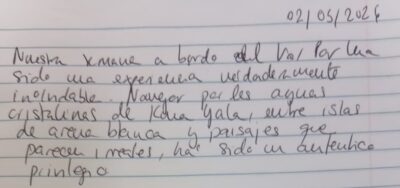 02/05/2026
Nuestra semana a bordo del Vai Por ha
sido una experiencia verdaderamente
inolvidable. Navegar por las aguas
cristalinas de Kuna Yala, entre islas
de arena blanca y paisajes que
parecen irreales, ha sido un auténtico
privilegio